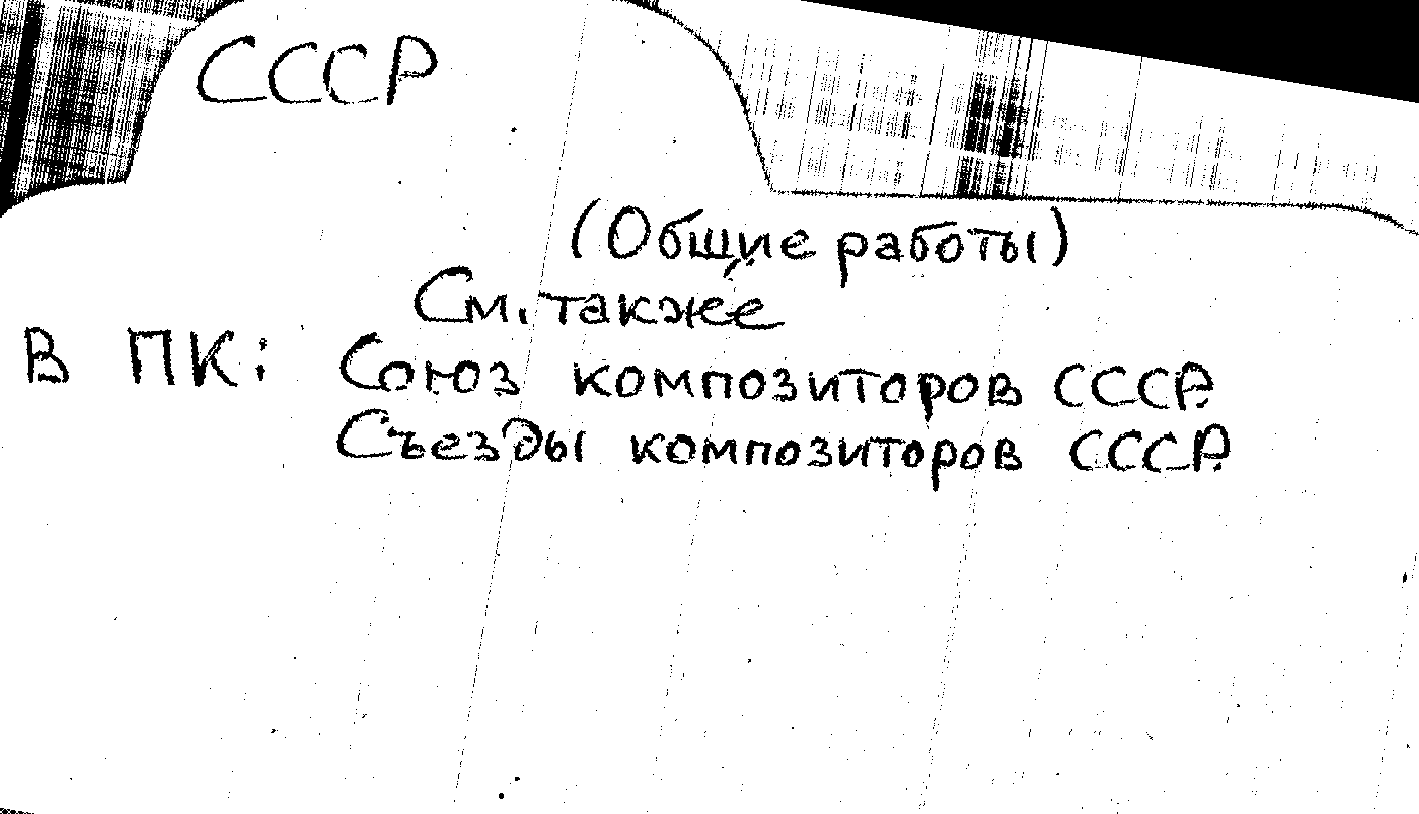 СССР
(Общие работы)
См. также
В ПК: Союз композиторов СССР.
Съезды композиторов СССР.